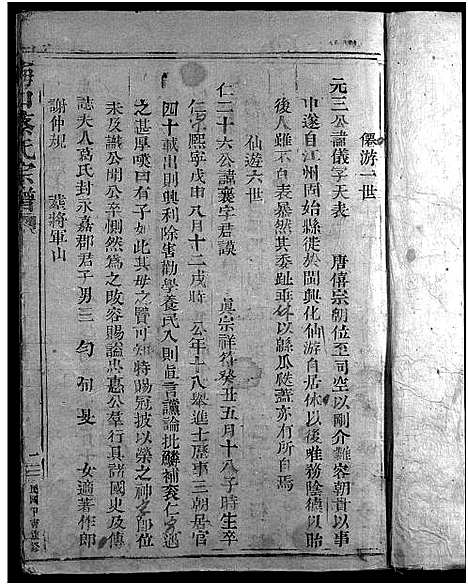 僊游一世
元三公諱儀字天表　唐僖宗朝位至司空以剛介難容朝貴以事
中遂自江州固始縣徙於閩興化仙游自居休以後唯務陰德以貽
後人雖不自表暴然其委趾垂休以緜瓜瓞蓋亦有所自焉
仙遊六世
仁二十六公諱襄字君謨　眞宗祥符癸丑五月十八子時生卒
仁宗熙寧戊申八月十二戌時　公年十八舉進士歷事三朝居官
四十載出則興利除害勸學養民入則直言讜論批鱗補袞仁宗
之甚厚嘆曰有子如此其母之賢可知特賜冠披以榮之神宗卽位
未及識公聞公卒惻然為之改容賜謚忠惠公羣行具諸國史及傳
誌夫人葛氏封永嘉郡君子男三　勻　旬　旻　女適著作郎
謝仲規　葬將軍山
蔡氏宗譜
民國甲寅重修